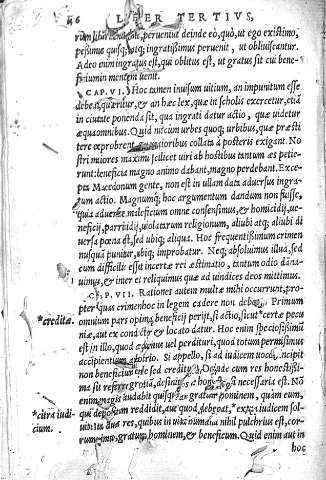 116 LIBER TERTIVS,
rum libera uoluntate, peruentū deinde eò, quò, ut ego existimo,
pessimus quisq; atq; ingratissimus peruenit, ut obliuiscantur.
Adeo enim ingratus est, qui oblitus est, ut gratus sit cui bene-
ficium in mentem uenit.
CAP. VI. Hoc tamen inuisum uitium, an impunitum esse
debeat, quæritur, & an hæc lex, quæ in scholis exercetur, etiā
in ciuitate ponenda sit, qua ingrati datur actio, quæ uidetur
æqua omnibus. Quid ni cum urbes quoq; urbibus, quæ præsti
tere exprobrent, & in maiores collata à posteris exigant. No
stri maiores maximi scilicet uiri ab hostibus tantum res petie-
runt: beneficia magno animo dabant, magno perdebant. Exce-
pta Macedonum gente, non est in ullam data aduersus ingra-
tum actio. Magnumq; hoc argumentum dandum non fuisse,
quia aduersus maleficium omne consensimus, & homicidij, ue-
neficij, parricidij, uiolatarum religionum, aliubi atq; aliubi di
uersa pœna est, sed ubiq; aliqua. Hoc frequentissimum crimen
nusquā punitur, ubiq; improbatur. Neq; absoluimus illud, sed
cum difficilis esset incertæ rei æstimatio, tantum odio dāna-
uimus, & inter ea reliquimus quæ ad uindices deos mittimus.
CAP. VII. Rationes autem multæ mihi occurrunt, pro-
pter quas crimen hoc in legem cadere non debeat. Primum
*creditæ. omnium pars optima beneficij perijt, si actio, sicut *certæ pecu
niæ, aut ex conducto & locato datur. Hoc enim speciosissimū
est in illo, quod dedimus uel perdituri, quod totum permisimus
accipientium arbitrio. Si appello, si ad iudicem uoco, incipit
non beneficium esse sed creditum. Deinde cum res honestissi-
ma sit referre gratiā, desinit esse honesta, si necessaria est. Nō
enim magis laudabit quisquam gratum hominem, quàm eum,
*citra iudi- qui depositum reddidit, aut quod debebat, *extra iudicem sol-
cium. uit. res, quibus in uita humana nihil pulchrius est, cor-
rumpimus, gratum hominem, & beneficum. Quid enim aut in
hoc